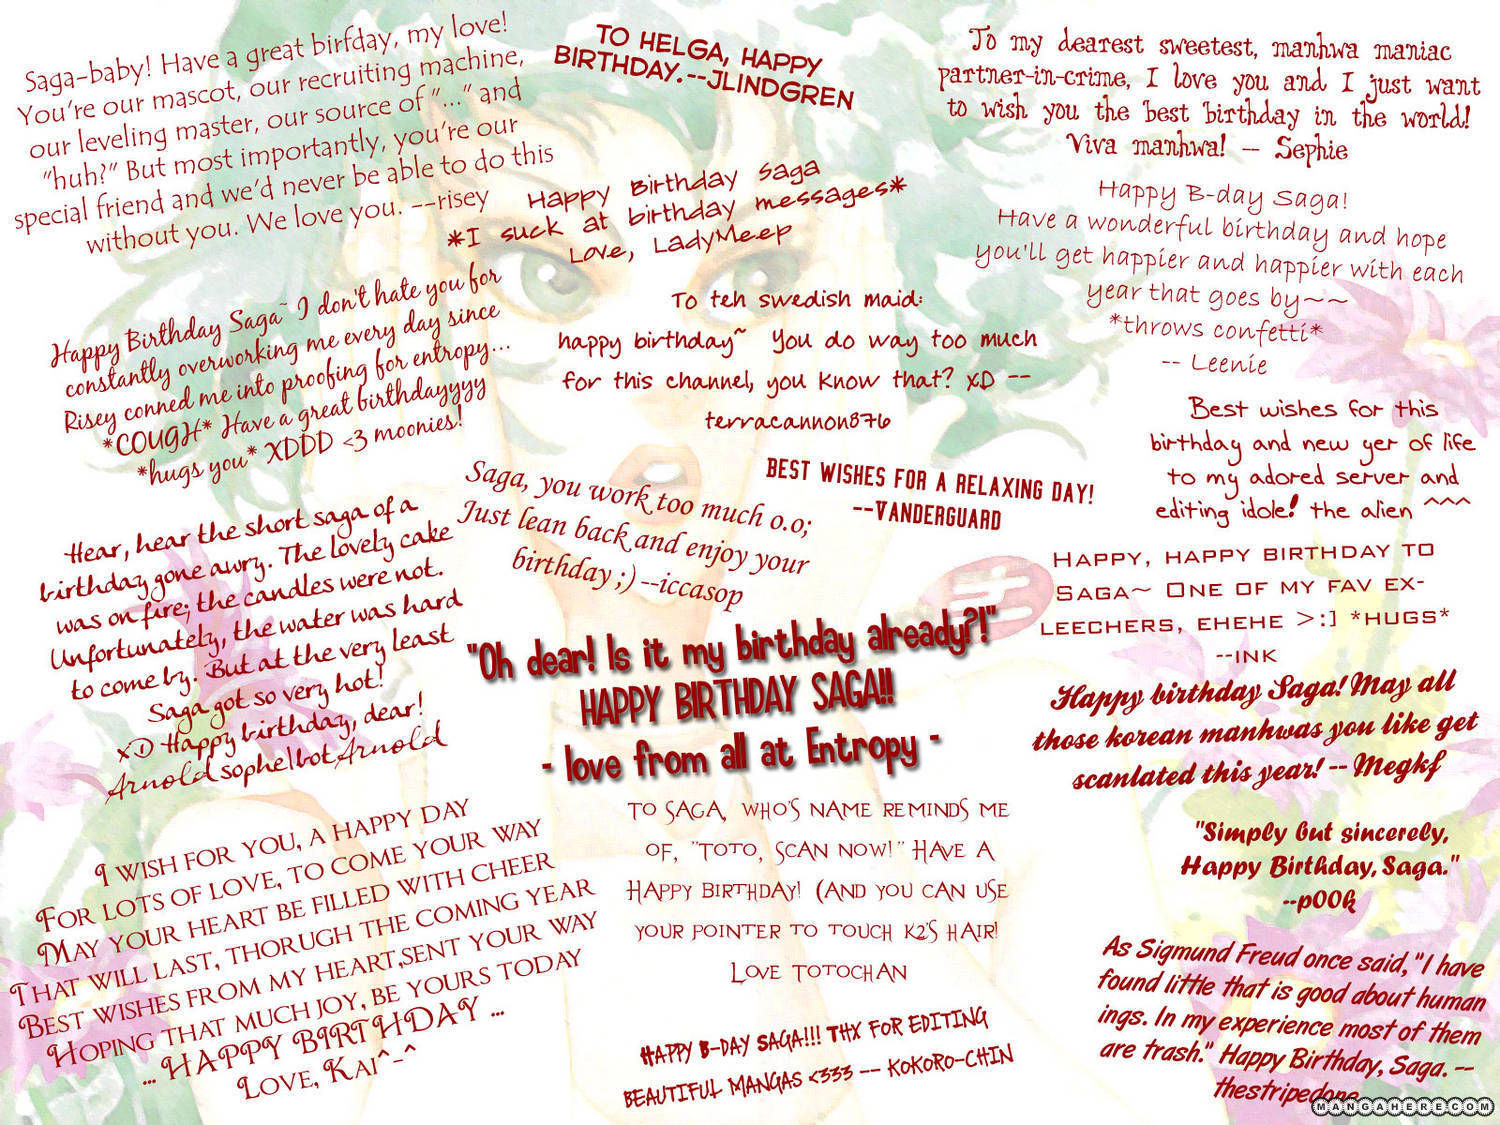 Saga-baby! Have a great birfday, my love!
You're our mascot, our recruiting machine,
our leveling master, our source of "..." and
"huh?" But most importantly, you're our
special friend and we'd never be able to do this
without you. We love you. --risey
TO HELGA, HAPPY
BIRTHDAY.--JLINDGREN
To my dearest sweetest, manhwa maniac
partner-in-crime, I love you and I just want
to wish you the best birthday in the world!
Viva manhwa! -- Sephie
Happy Birthday Saga
*I suck at birthday messages*
Love, LadyMeep
Happy B-day Saga!
Have a wonderful birthday and hope
you'll get happier and happier with each
year that goes by~~
*throws confetti*
-- Leenie
Happy Birthday Saga~ I don't hate you for
constantly overworking me every day since
Risey conned me into proofing for entropy...
*COUGH* Have a great birthdayyyy
*hugs you* XDDD <3 moonies!
To teh swedish maid:
happy birthday~ You do way too much
for this channel, you know that? XD --
terracannon876
Best wishes for this
birthday and new yer of life
to my adored server and
editing idole! the alien ^^^
Saga, you work too much o.o;
Just lean back and enjoy your
birthday ;) --iccasop
BEST WISHES FOR A RELAXING DAY!
--VANDERGUARD
Hear, hear the short saga of a
birthday gone awry. The lovely cake
was on fire; the candles were not.
Unfortunately, the water was hard
to come by. But at the very least
Saga got so very hot!
XD Happy birthday, dear!
Arnold sophelbot Arnold
HAPPY, HAPPY BIRTHDAY TO
SAGA~ ONE OF MY FAV EX-
LEECHERS, EHEHE >:] *HUGS*
--INK
"Oh dear! Is it my birthday already?!"
HAPPY BIRTHDAY SAGA!!!
- love from all at Entropy -
Happy birthday Saga! May all
those korean manhwas you like get
scanlated this year! -- Megkf
I WISH FOR YOU, A HAPPY DAY
FOR LOTS OF LOVE, TO COME YOUR WAY
MAY YOUR HEART BE FILLED WITH CHEER
THAT WILL LAST, THORUGH THE COMING YEAR
BEST WISHES FROM MY HEART,SENT YOUR WAY
HOPING THAT MUCH JOY, BE YOURS TODAY
... HAPPY BIRTHDAY ...
LOVE, KAI^-^
TO SAGA, WHO'S NAME REMINDS ME
OF, "TOTO, SCAN NOW!" HAVE A
HAPPY BIRTHDAY! (AND YOU CAN USE
YOUR POINTER TO TOUCH K2'S HAIR!
LOVE TOTOCHAN
"Simply but sincerely,
Happy Birthday, Saga."
--p00k
HAPPY B-DAY SAGA!!! THX FOR EDITING
BEAUTIFUL MANGAS <333 -- KOKORO-CHIN
As Sigmund Freud once said,"I have
found little that is good about human
ings. In my experience most of them
are trash." Happy Birthday, Saga. --
thestripedone
MANGAHERE.COM